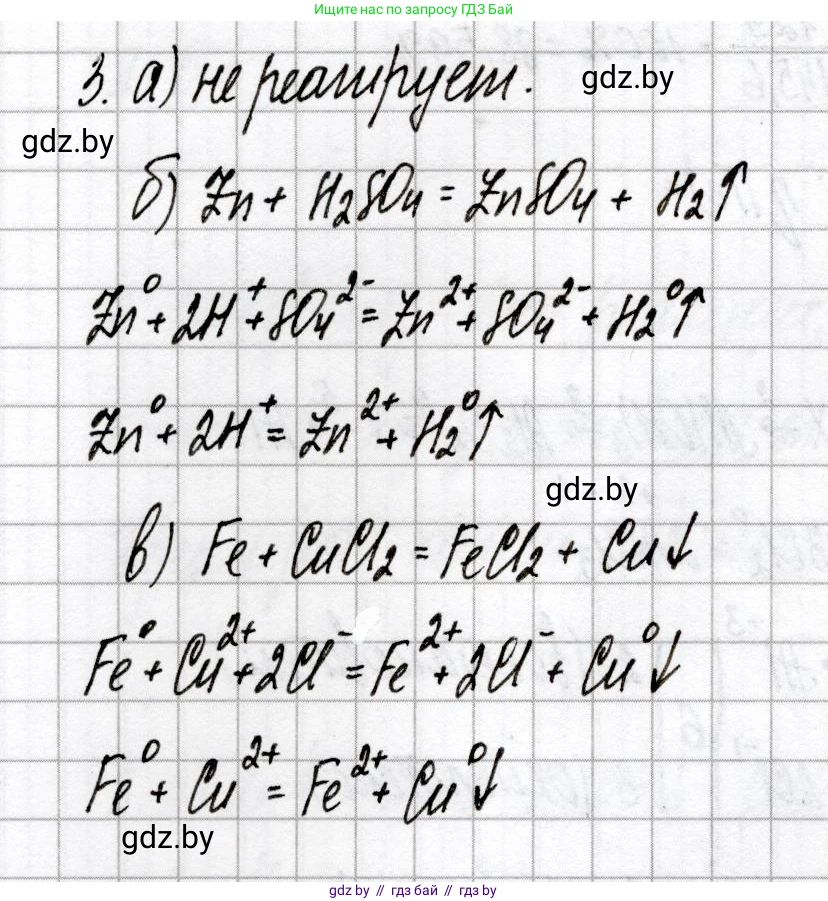 Ищите нас по запросу ГДЗ Бай
3. а) не реагирует.
gdz.by
gdz.by
б) Zn + H₂SO₄ = ZnSO₄ + H₂↑
Zn⁰ + 2H⁺ + SO₄²⁻ = Zn²⁺ + SO₄²⁻ + H₂⁰↑
Zn⁰ + 2H⁺ = Zn²⁺ + H₂⁰↑
gdz.by
в) Fe + CuCl₂ = FeCl₂ + Cu↓
Fe⁰ + Cu²⁺ + 2Cl⁻ = Fe²⁺ + 2Cl⁻ + Cu⁰↓
Fe⁰ + Cu²⁺ = Fe²⁺ + Cu⁰↓
gdz.by
gdz by // гдз бай // гдз by